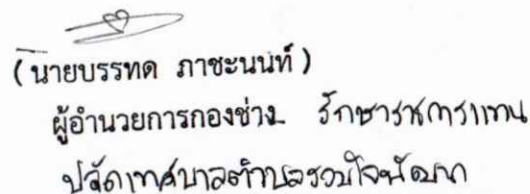 (นายบรรทด ภาชะนนท์)
ผู้อำนวยการกองช่าง รักษาราชการแทน
ปลัดเทศบาลตำบลรวมใจพัฒนา